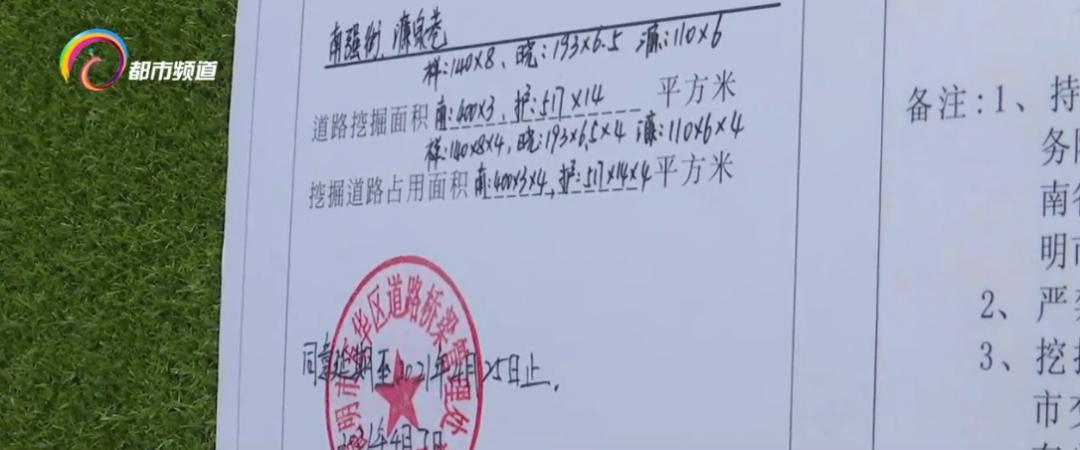 都市频道
南强街、濂泉巷
祥:140×8、晓:193×6.5 濂:110×6
道路挖掘面积 南:400×3、护:517×14 平方米
祥:140×8×4,晓:193×6.5×4 濂:110×6×4
挖掘道路占用面积 南:400×3×4,护:517×14×4 平方米
明市五华区道路桥梁管理处
同意延期至2021年4月25日止.
2021年4月7日
备注:1、持
务院
南省
明市
2、严禁
3、挖掘
市交